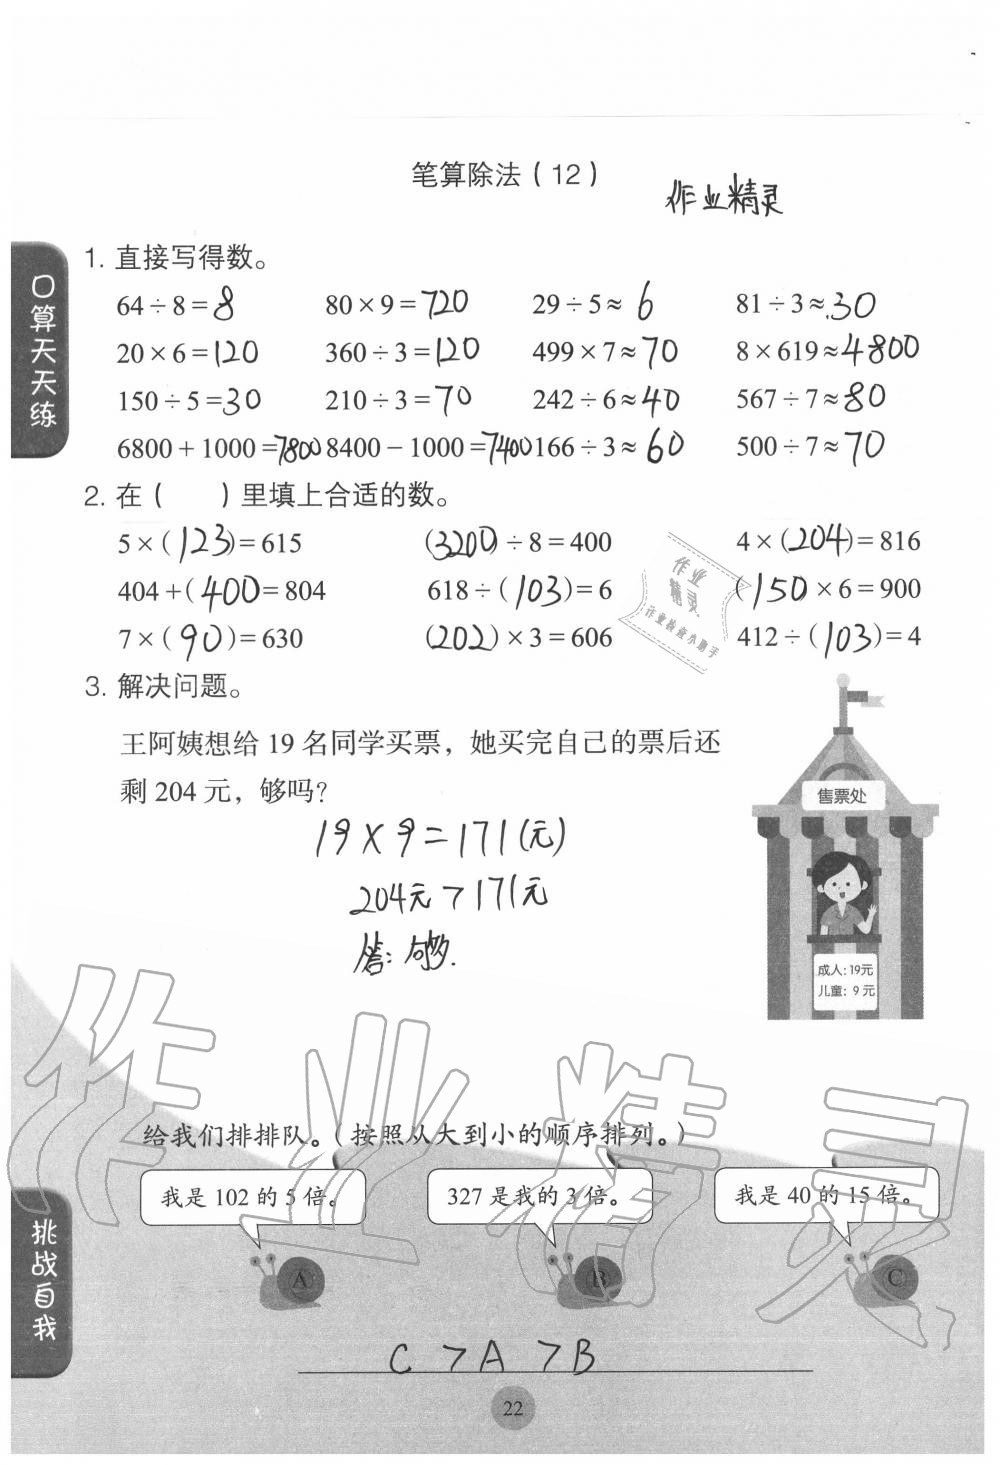 笔算除法（12）
作业精灵
口算天天练
1. 直接写得数。
64÷8=8 80×9=720 29÷5≈6 81÷3≈30
20×6=120 360÷3=120 499×7≈70 8×619≈4800
150÷5=30 210÷3=70 242÷6≈40 567÷7≈80
6800+1000=7800 8400-1000=7400 166÷3≈60 500÷7≈70
2. 在（ ）里填上合适的数。
5×(123)=615 (3200)÷8=400 4×(204)=816
404+(400)=804 618÷(103)=6 (150×6=900
7×(90)=630 (202)×3=606 412÷(103)=4
作业
精灵
作业检查小助手
3. 解决问题。
王阿姨想给19名同学买票，她买完自己的票后还
剩204元，够吗？
售票处
19×9=171(元)
204元>171元
答：够.
成人：19元
儿童：9元
作业精灵
给我们排排队。（按照从大到小的顺序排列。）
我是102的5倍。 327是我的3倍。 我是40的15倍。
A B C
挑战自我
C>A>B
22